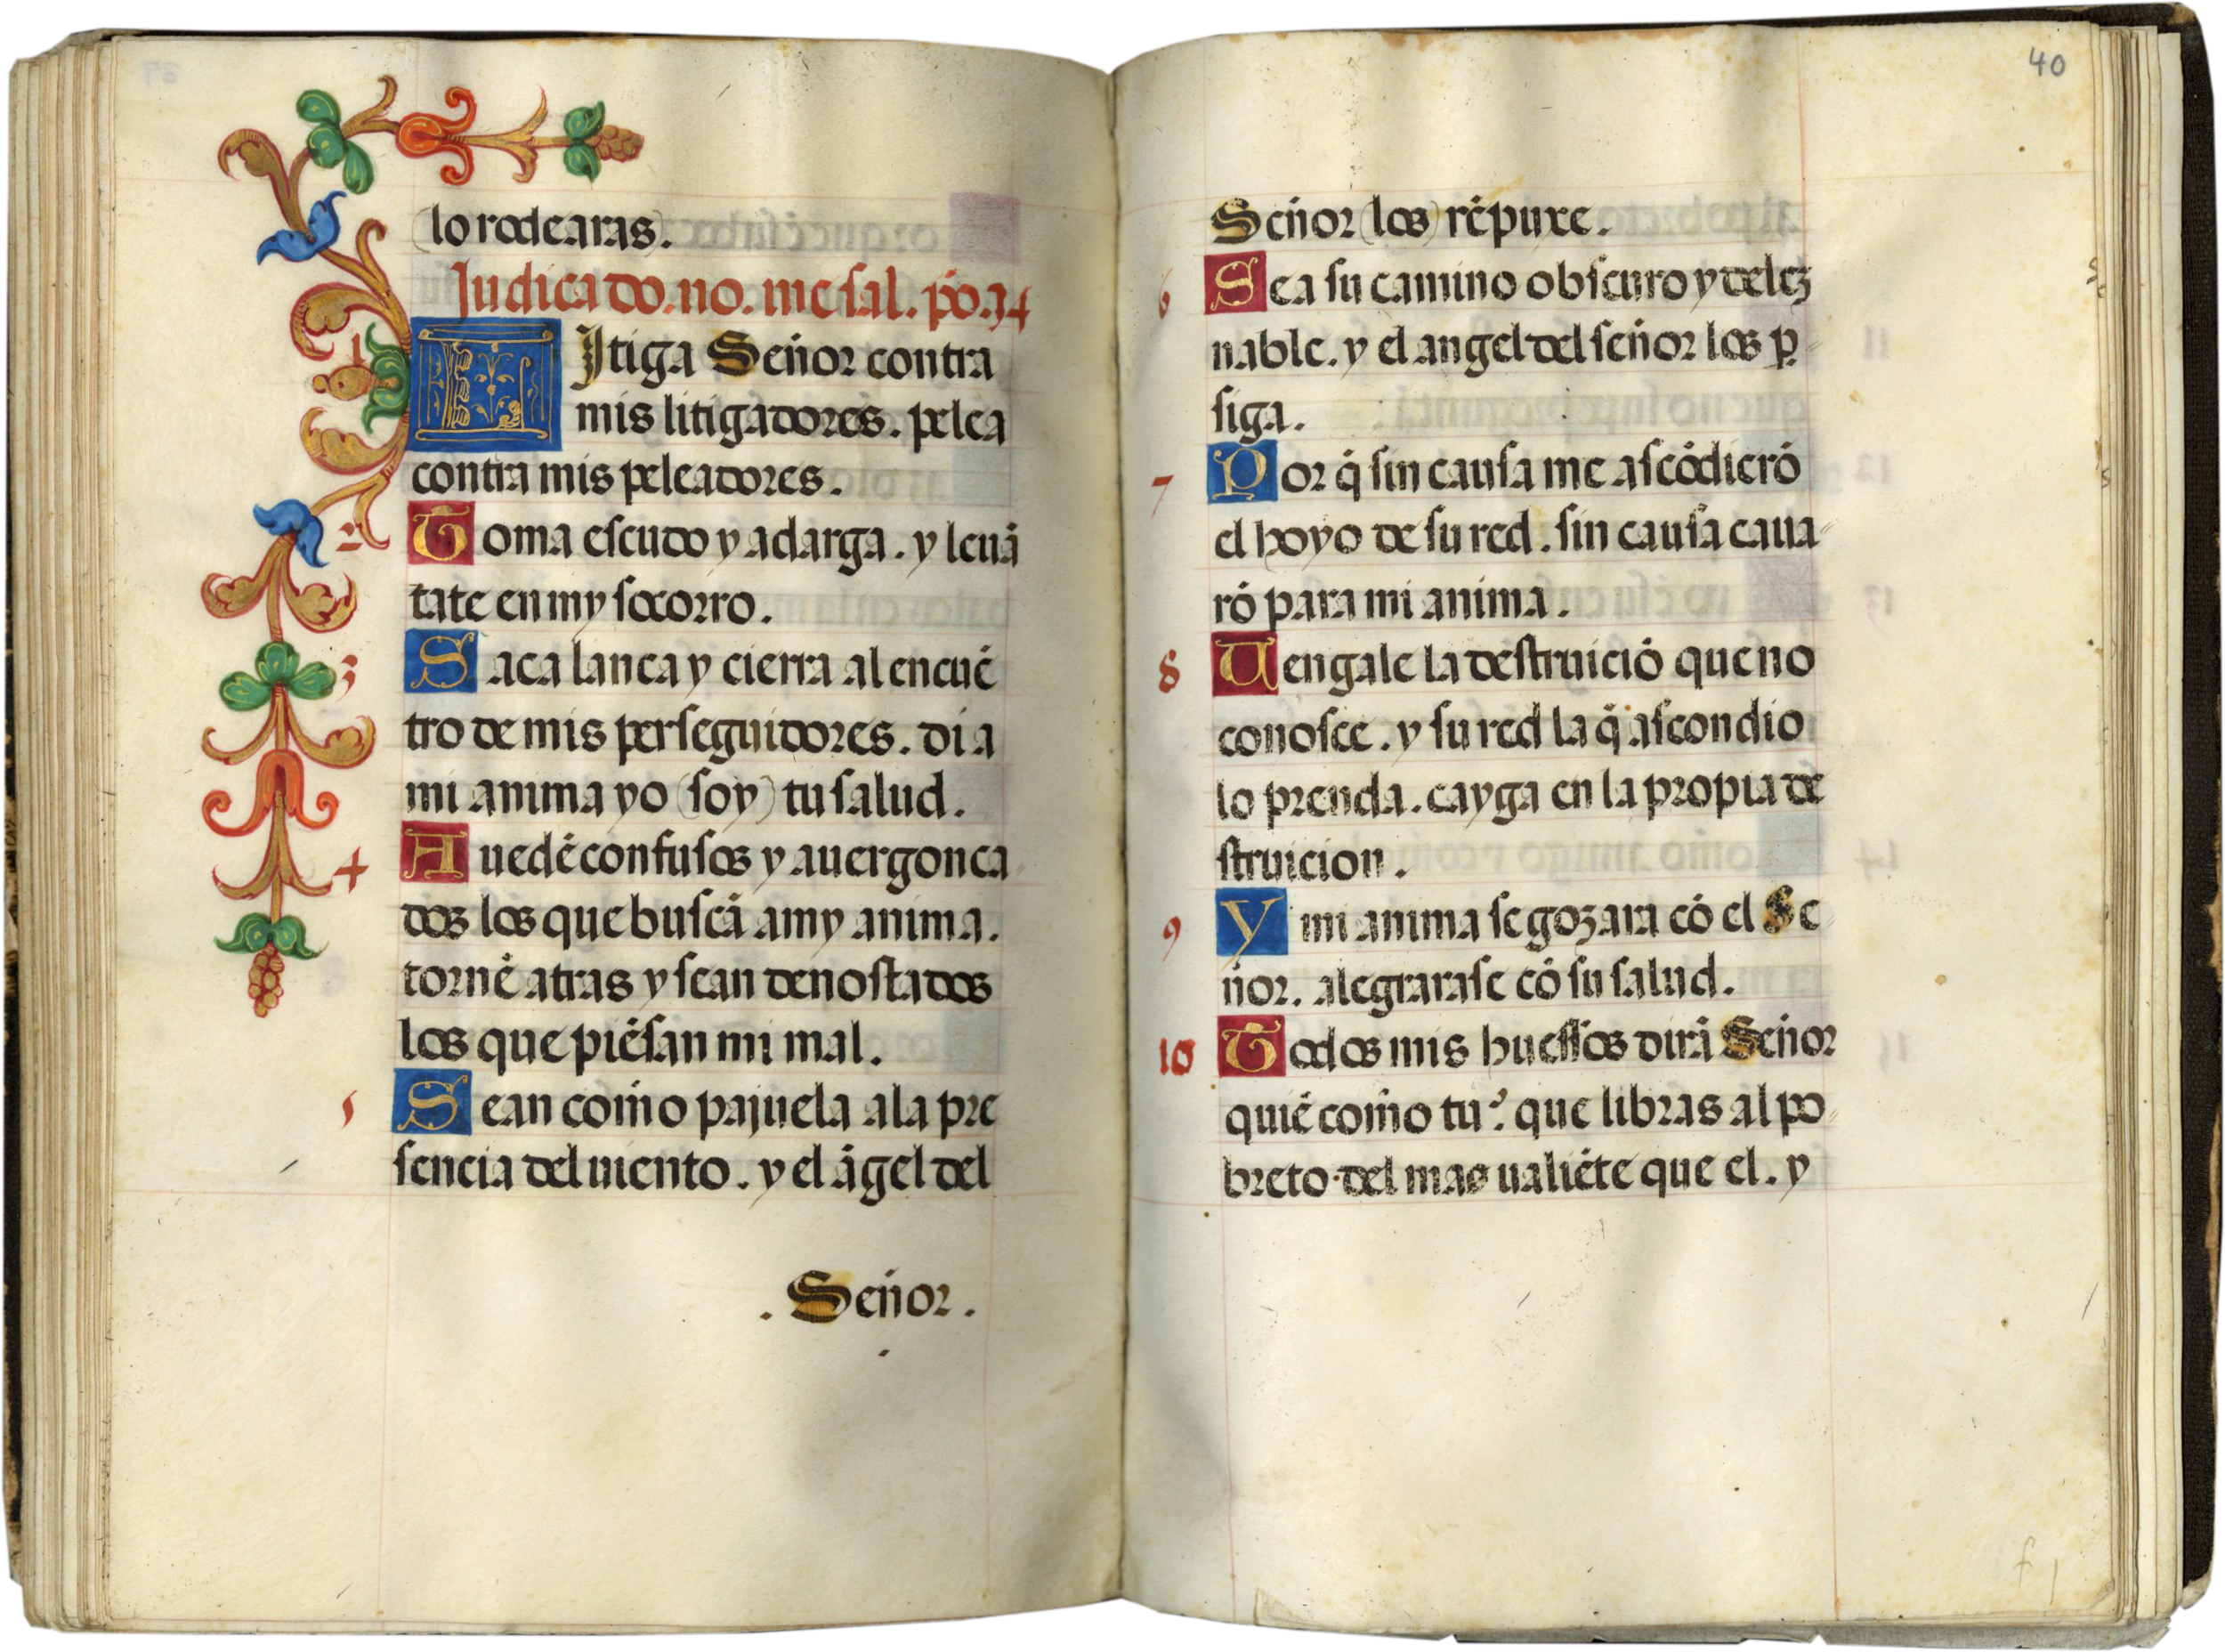 (lo rodearas).
Judica do. no. me sal. pō. 34
1 LItiga Señor contra
mis litigadores. pelea
contra mis peleadores.
2 Toma escudo y adarga. y leuā
tate en my socorro.
3 Saca lanca y cierra al encuē
tro de mis perseguidores. di a
mi anima yo (soy) tu salud.
4 Auedē confusos y auergonca
dos los que buscā a my anima.
tornē atras y sean denostados
los que piēsan mi mal.
5 Sean coḿo pajuela a la pre
sencia del uiento. y el āgel del
. Señor .
40
Señor (los) rēpuxe.
6 Sea su camino obscuro y delez
nable. y el angel del señor los ꝑ
siga.
7 Por q̄ sin causa me ascōdierō
el hoyo de su red. sin causa caua
rō para mi anima.
8 Uengale la destruiciō que no
conosce. y su red la q̄ ascondio
lo prenda. cayga en la propia de
struicion.
9 Y mi anima se gozara cō el Se
ñor. alegrarase cō su salud.
10 Todos mis huessos dirā Señor
quiē coḿo tu? que libras al po
breto del mas ualiēte que el. y